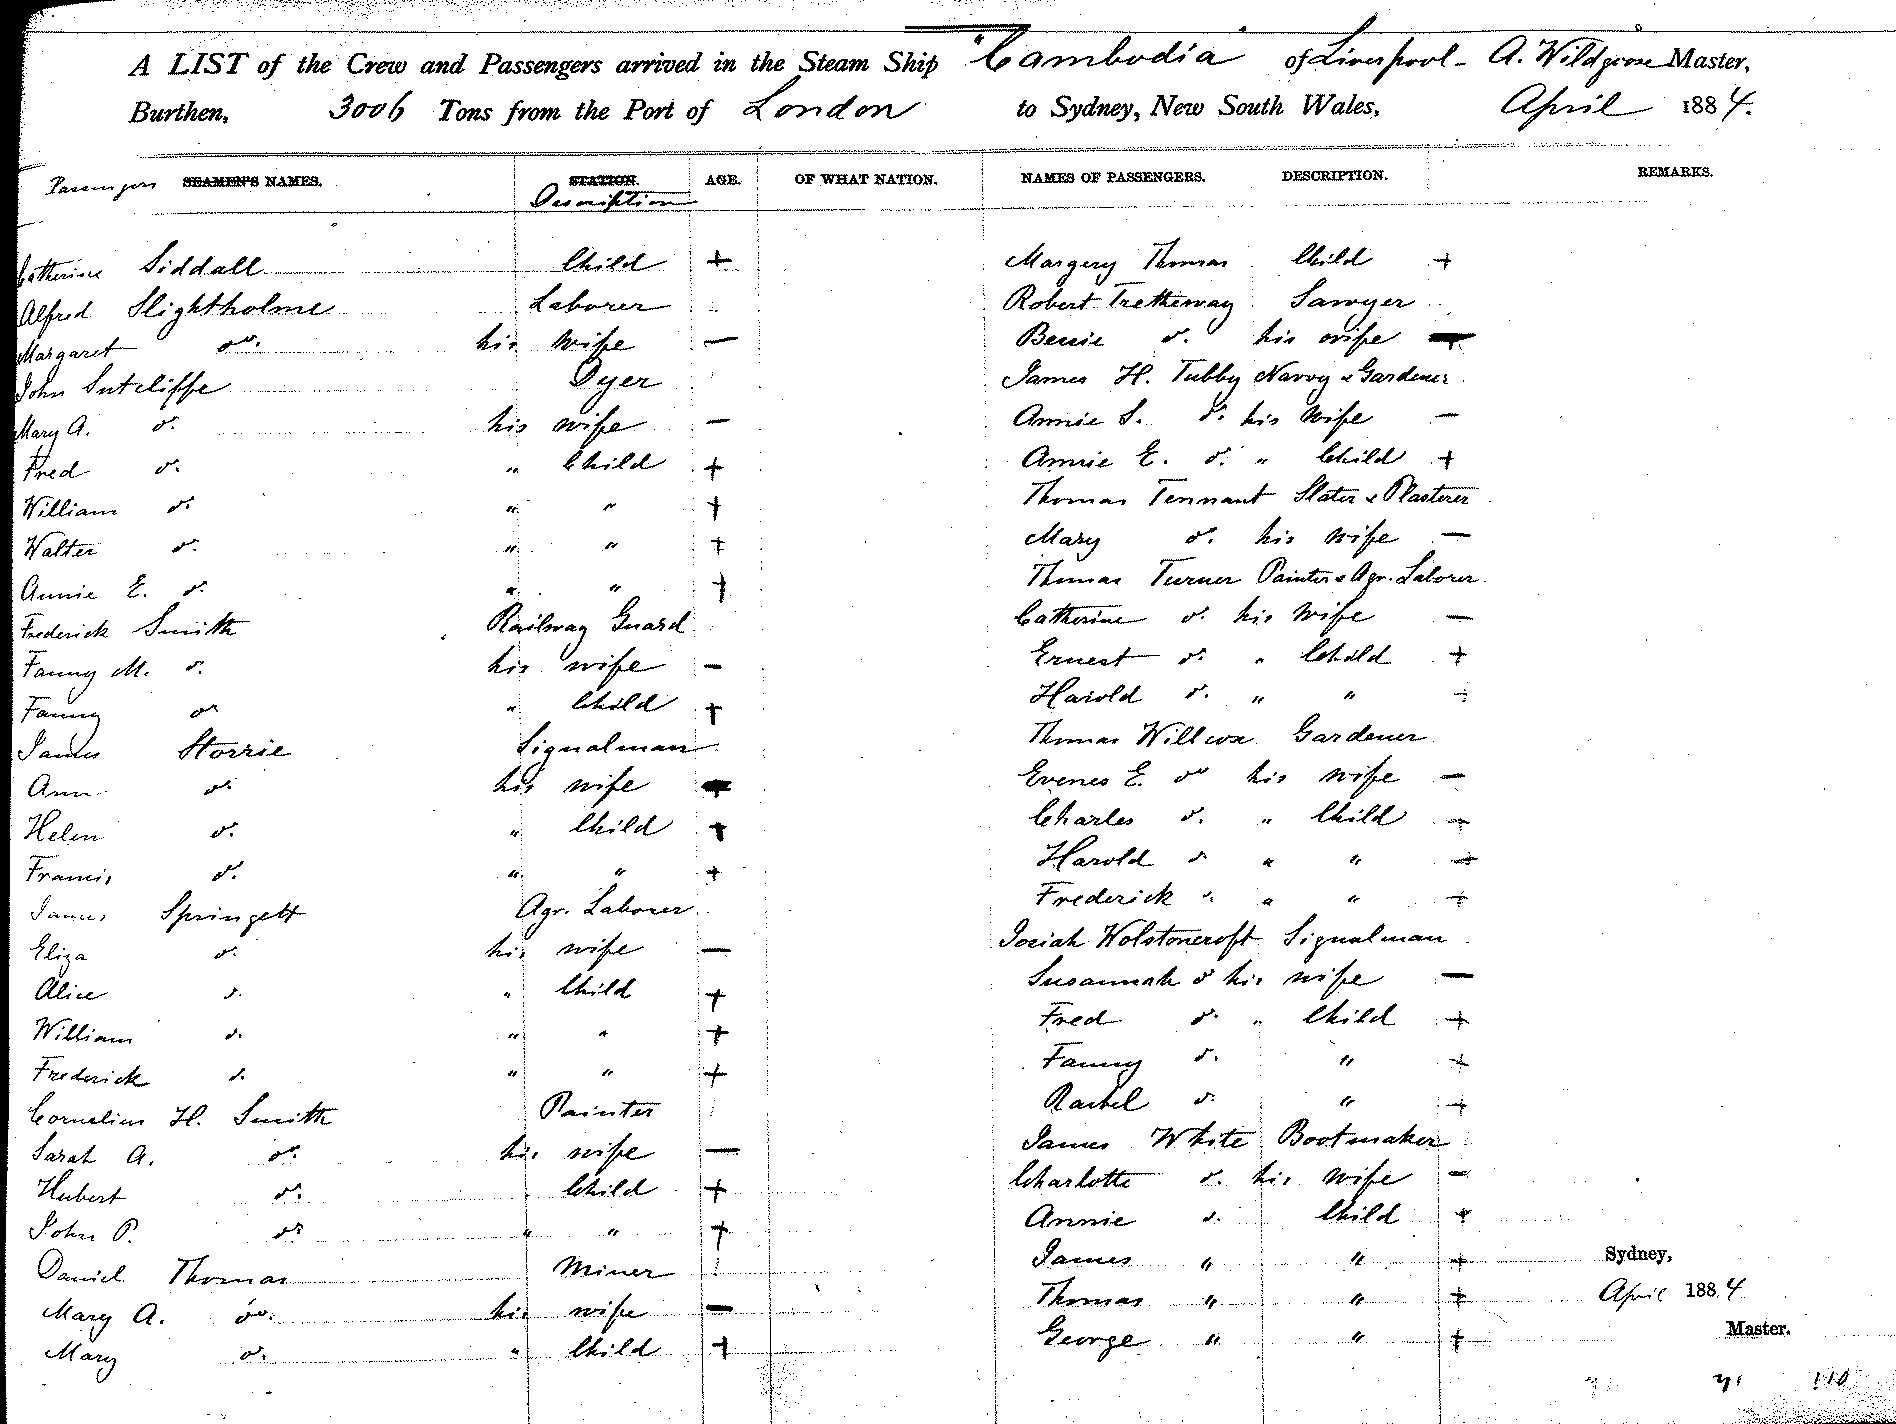 A LIST of the Crew and Passengers arrived in the Steam Ship "Cambodia" of Liverpool - A. Wildgoose Master,
Burthen, 3006 Tons from the Port of London to Sydney, New South Wales, April 1884.
Passengers SEAMEN'S NAMES. STATION. AGE. OF WHAT NATION. NAMES OF PASSENGERS. DESCRIPTION. REMARKS.
Description
Catherine Siddall Child +
Alfred Slightholme Laborer
Margaret do. his wife —
John Sutcliffe Dyer
Mary A. do. his wife —
Fred do. " Child +
William do. " " +
Walter do. " " +
Annie E. do. " " +
Frederick Smith Railway Guard
Fanny M. do. his wife —
Fanny do " Child +
James Storrie Signalman
Ann do. his wife —
Helen do. " Child +
Francis do. " " +
James Springett Agr. Laborer
Eliza do. his wife —
Alice do. " Child +
William do. " " +
Frederick do. " " +
Cornelius H. Smith Painter
Sarah A. do. his wife —
Hubert do. Child +
John P. do " " +
Daniel Thomas Miner
Mary A. do. his wife —
Mary do. " Child +
Margery Thomas Child +
Robert Tretheway Sawyer
Bessie do. his wife —
James H. Tubby Navvy & Gardener
Annie S. do. his wife —
Annie E. do. " Child +
Thomas Tennant Slater & Plasterer
Mary do. his wife —
Thomas Turner Painter & Agr. Laborer
Catherine do. his wife —
Ernest do. " Child +
Harold do. " " +
Thomas Willcox Gardener
E. do his wife —
Charles do. " Child +
Harold do " " +
Frederick " " " +
Josiah Wolstoncroft Signalman
Susannah do his wife —
Fred do. " Child +
Fanny do. " +
Rachel do. " +
James White Bootmaker
Charlotte do. his wife —
Annie do. Child +
James " " +
Thomas " " +
George " " +
Sydney,
April 1884
Master.
110